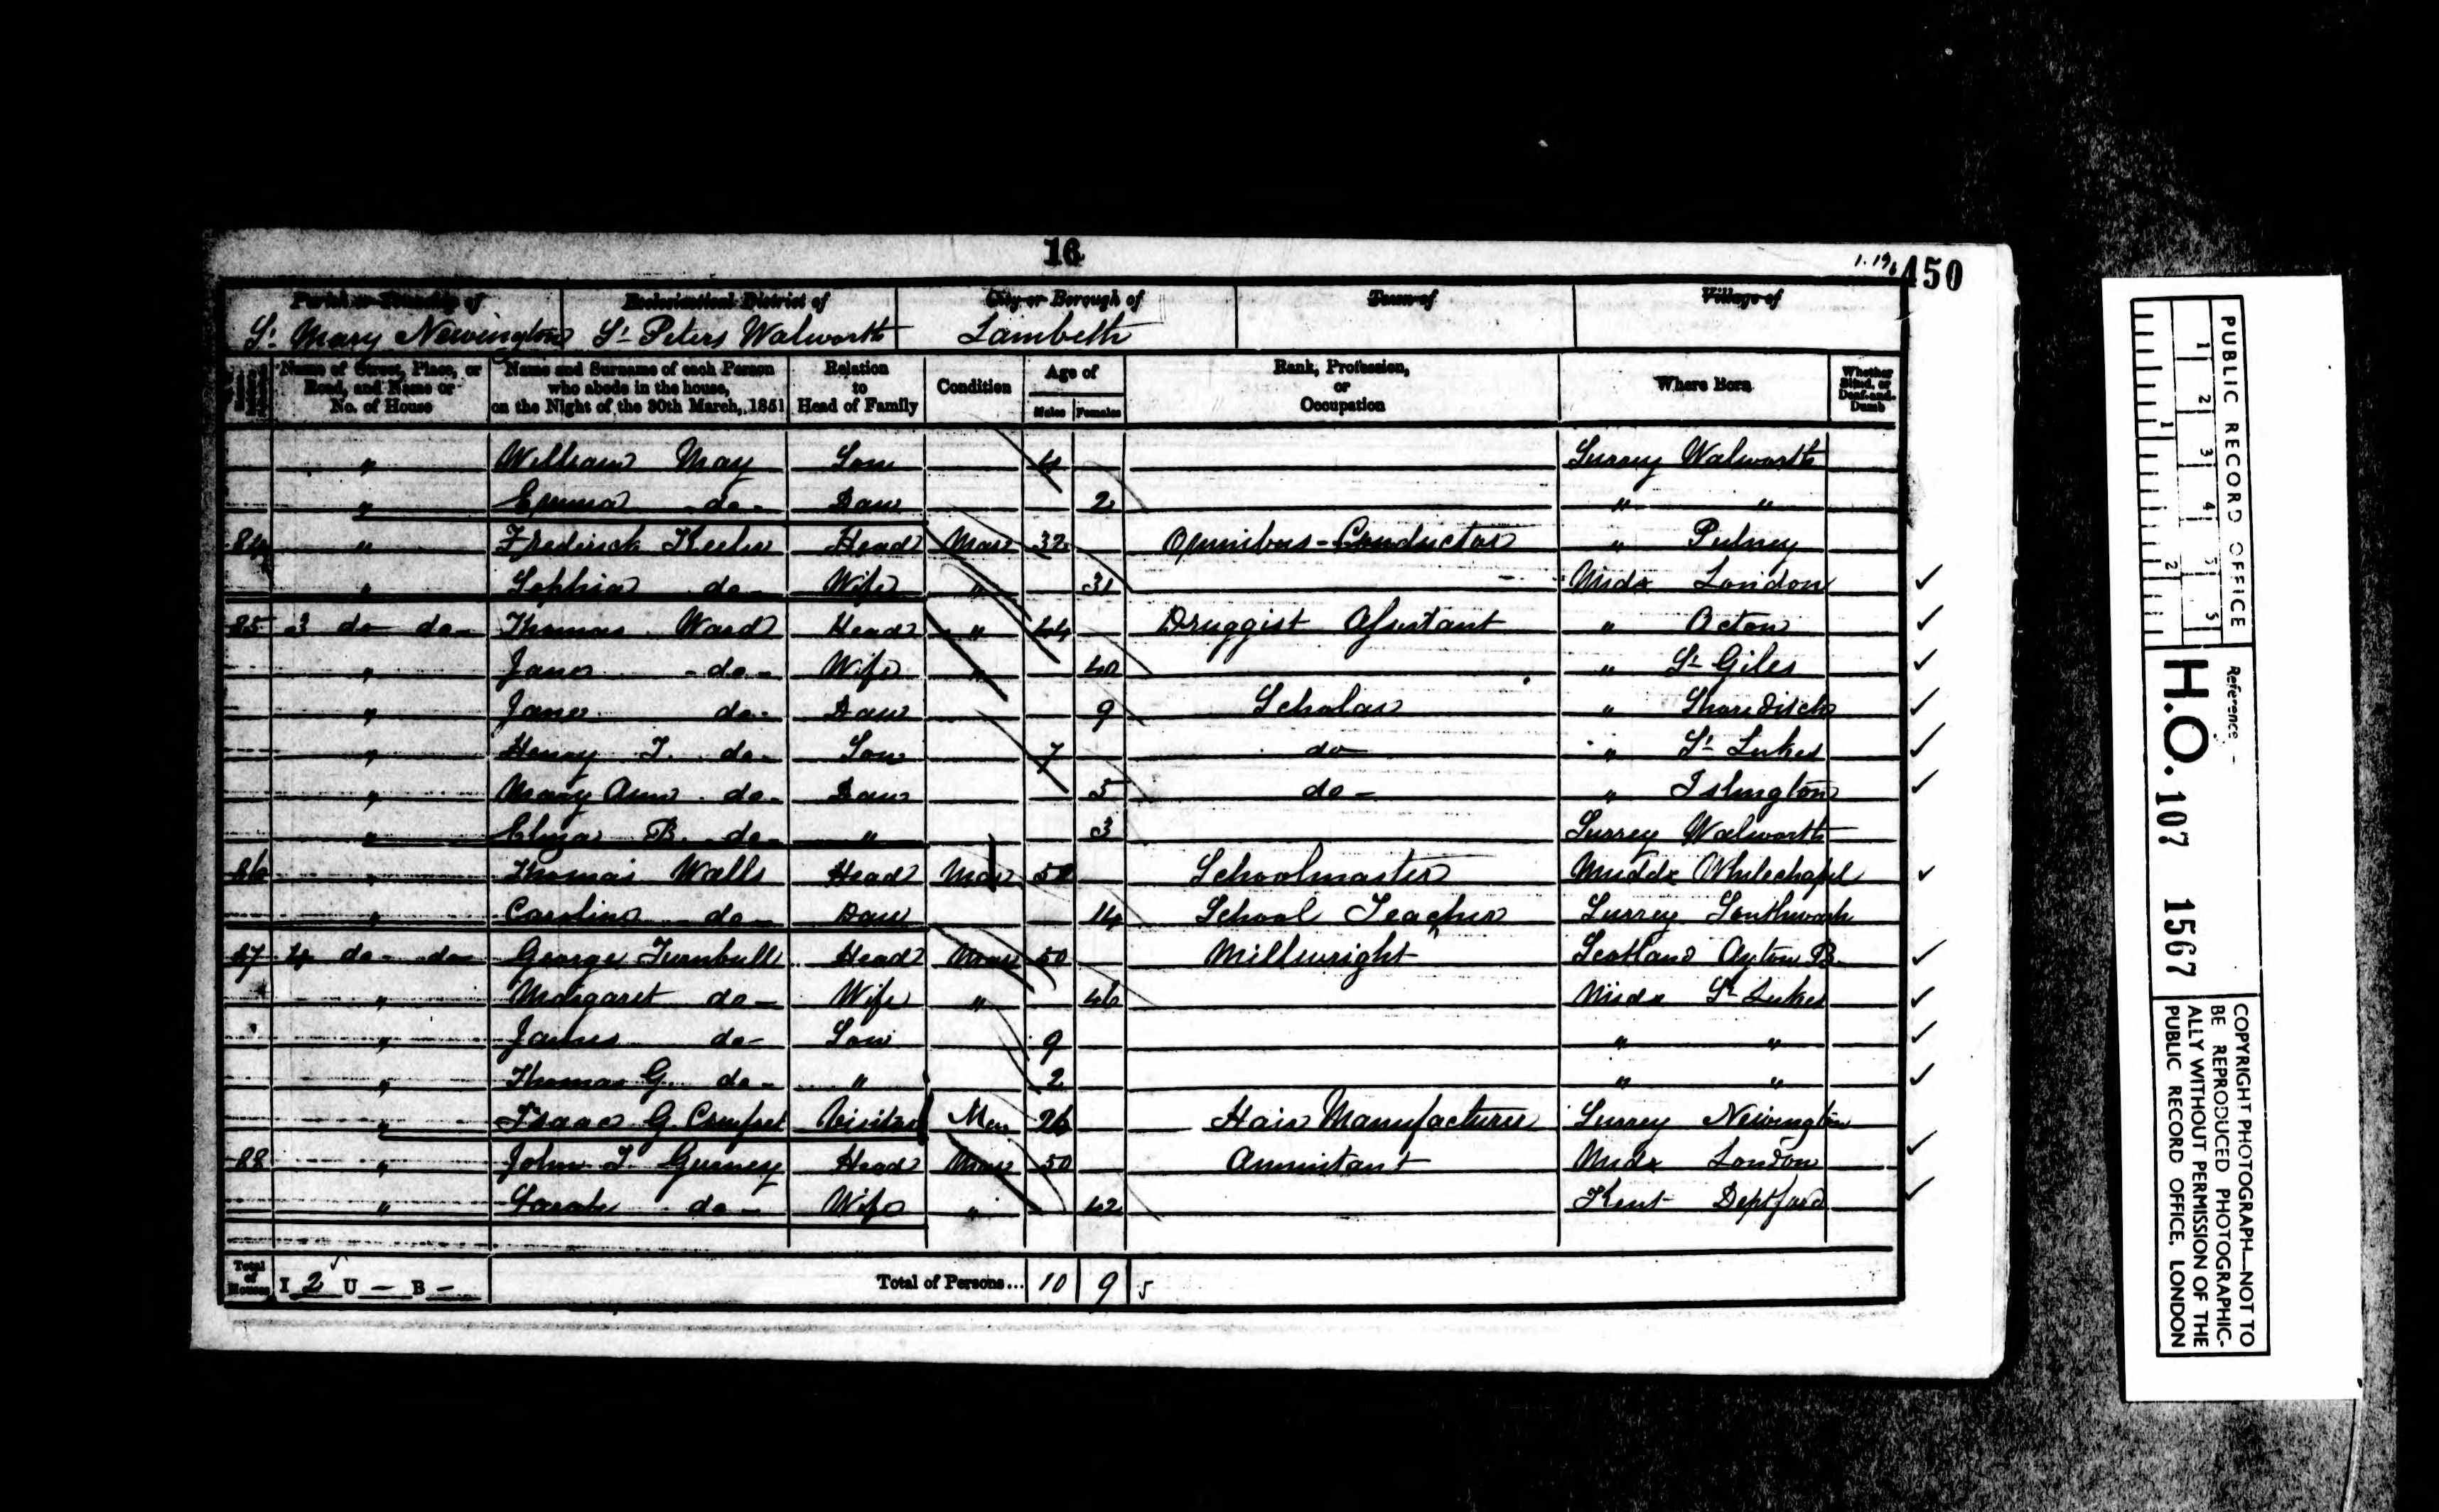 16
1.19.
450
Parish or Township of Ecclesiastical District of City or Borough of Town of Village of
St. Mary Newington St. Peters Walworth Lambeth
Name of Street, Place, or Road, and Name or No. of House
Name and Surname of each Person who abode in the house, on the Night of the 30th March, 1851
Relation to Head of Family
Condition
Age of
Males Females
Rank, Profession, or Occupation
Where Born
Whether Blind, or Deaf-and-Dumb
" William May Son 4 Surrey Walworth
" Emma do- Daur 2 " "
84 " Frederick Keeler Head Mar 32 Omnibus-Conductor " Putney
" Sophia do- Wife " 31 Midx London
85 3 do- do- Thomas Ward Head " 44 Druggist Assistant " Acton
" Jane -do- Wife " 40 " St Giles
" Jane do- Daur 9 Scholar " Shoreditch
" Henry T. do- Son 7 do " St Lukes
" Mary Ann do- Daur 5 do- " Islington
" Eliza B. do- " 3 Surrey Walworth
86 " Thomas Walls Head Mar 52 Schoolmaster Middx Whitechapel
" Caroline do- Daur 14 School Teacher Surrey Southwark
87 4 do- do- George Turnbull Head Mar 50 Millwright Scotland Ayton B.
" Margaret do- Wife " 46 Midx St Lukes
" James do- Son 9 " "
" Thomas G. do- " 2 " "
" Isaac G. Visitor Mar 26 Hair Manufacturer Surrey Newington
88 " John T. Gurney Head Mar 50 Midx London
" Sarah do- Wife " 42 Kent Deptford
Total of Houses I 2 U - B -
Total of Persons... 10 9 5
PUBLIC RECORD OFFICE
1 2 3 4 5
1 2
Reference -
H.O. 107 1567
COPYRIGHT PHOTOGRAPH—NOT TO
BE REPRODUCED PHOTOGRAPHIC-
ALLY WITHOUT PERMISSION OF THE
PUBLIC RECORD OFFICE, LONDON